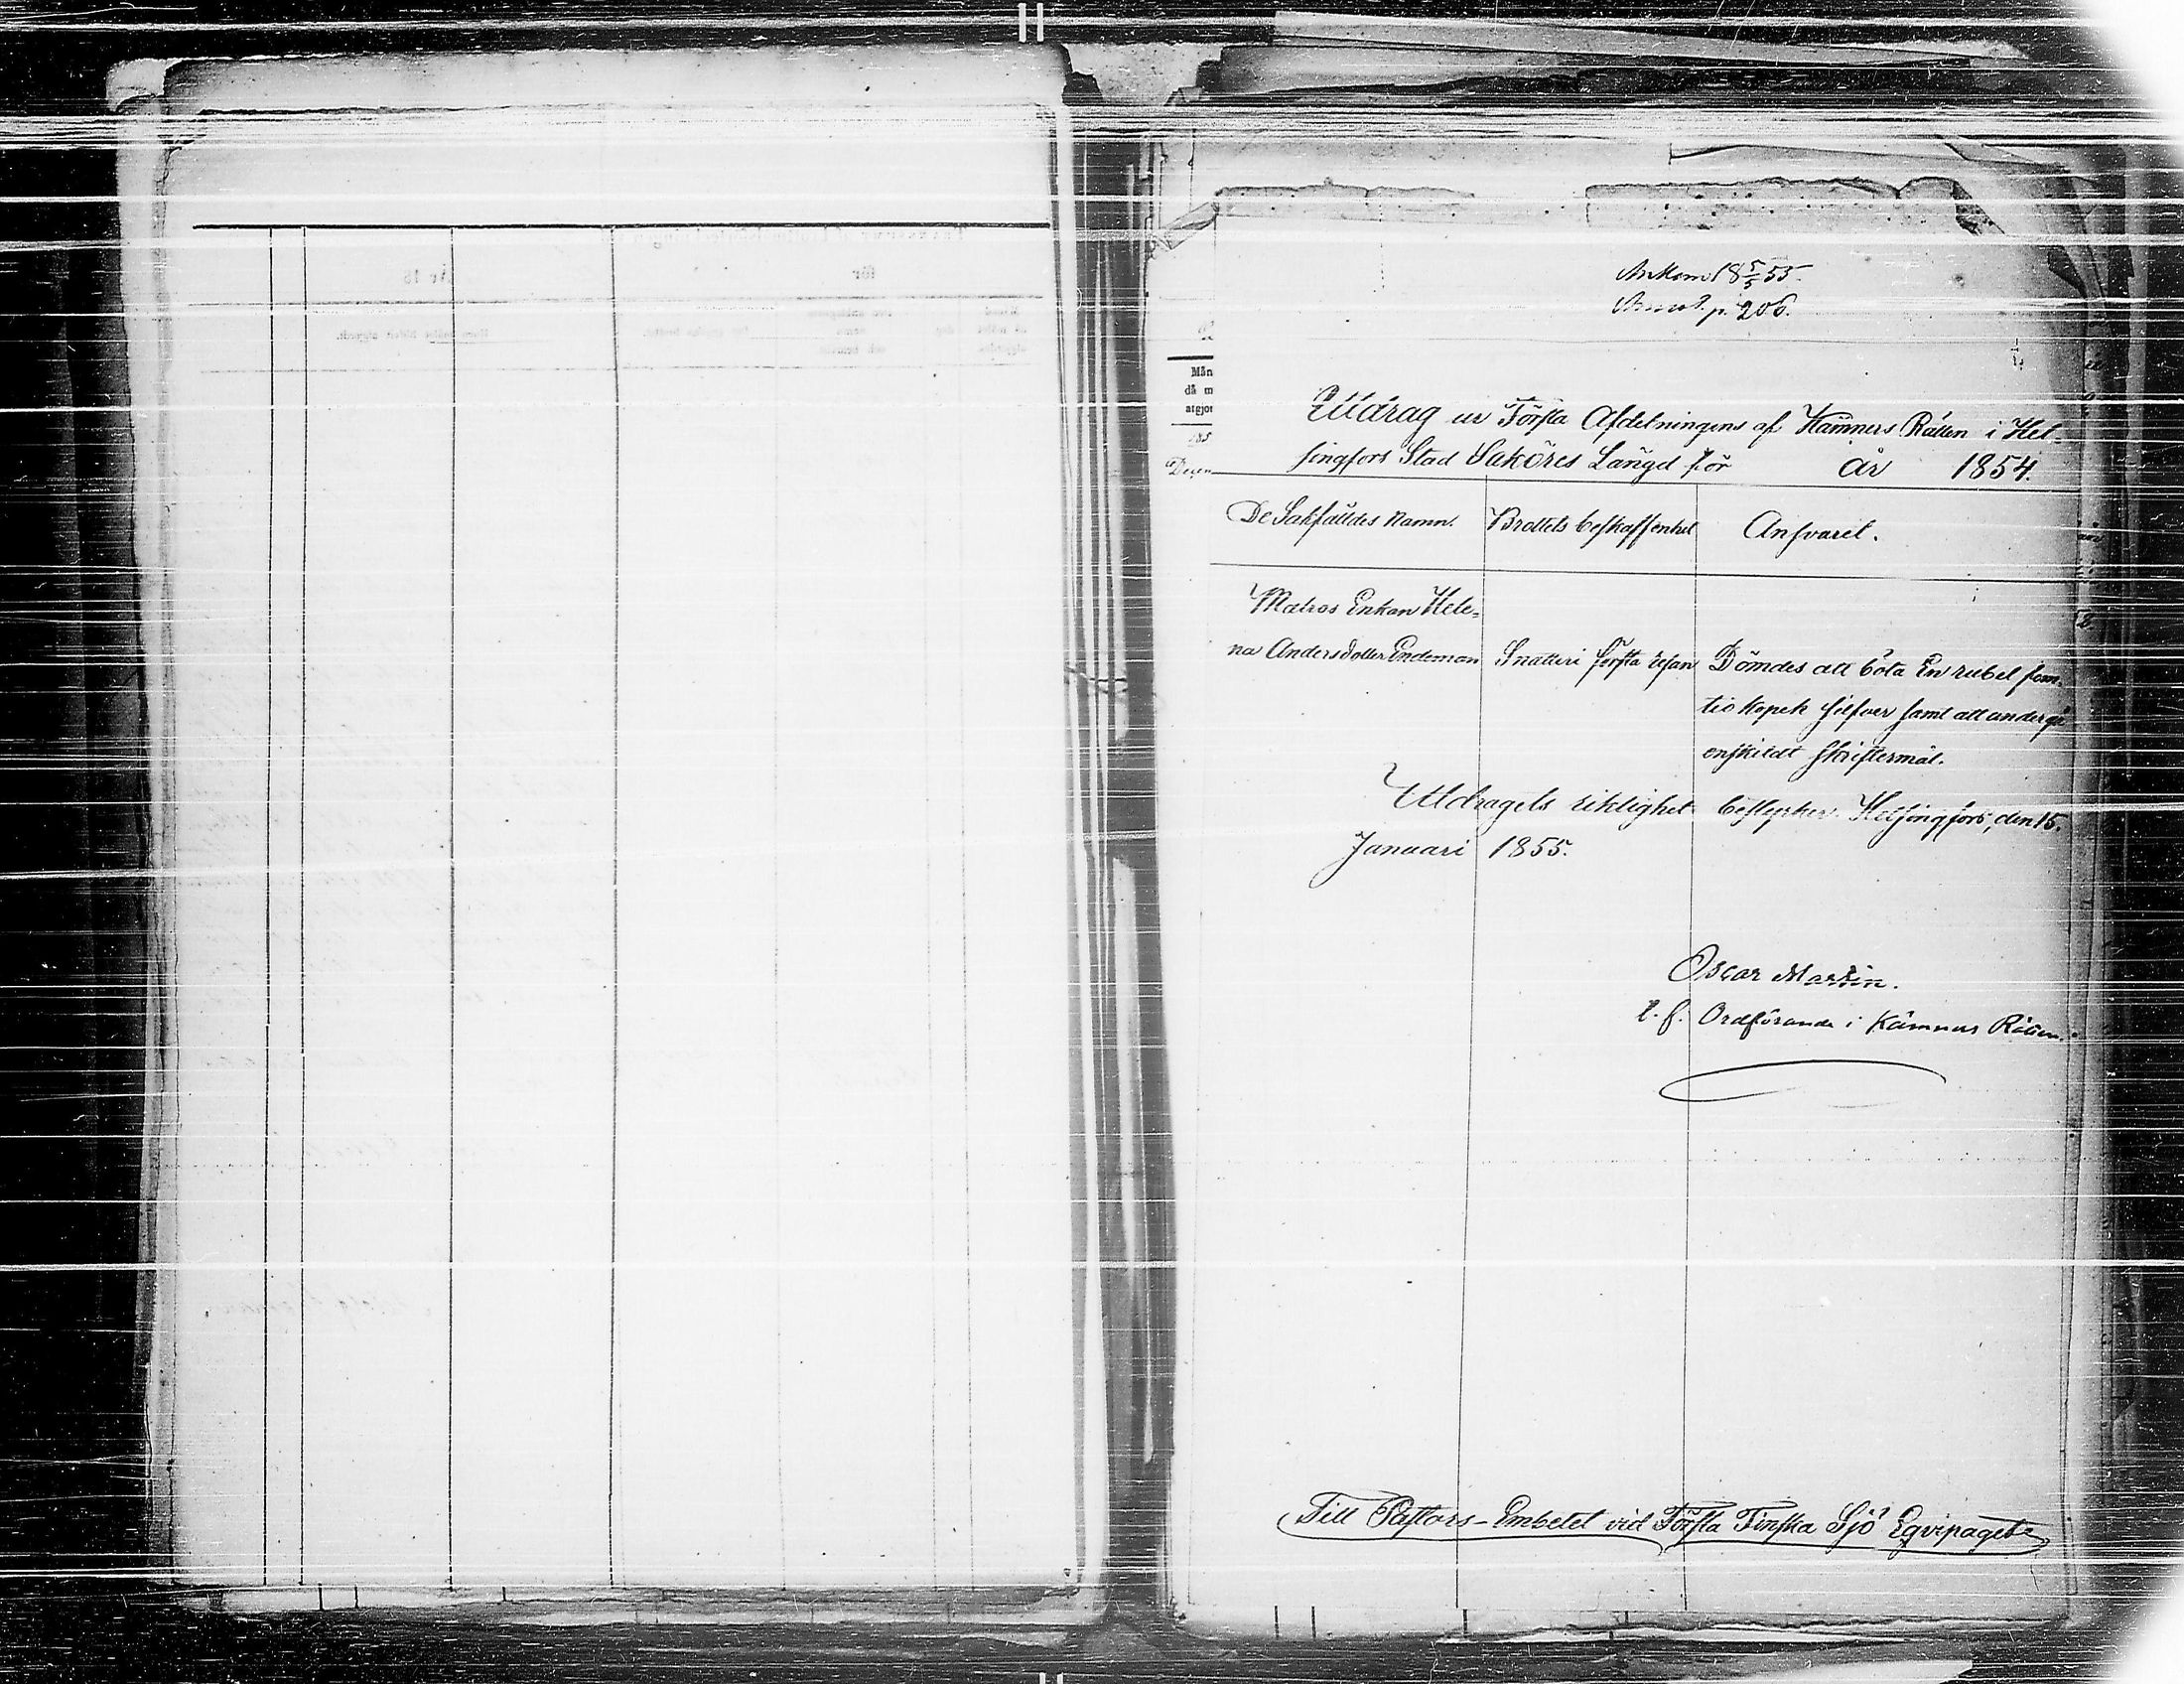 Ankom 18 5/5 55.
Annot. p. 206.
Utdrag ur Första Afdelningens af Kämners Rätten i Hel-
singfors Stad Saköres Längd för år 1854.
De Sakfälldes Namn. Brottets beskaffenhet Ansvaret.
Matros Enkan Hele-
na Andersdotter Endeman Snatteri första resan Dömdes att bota En rubel fem-
tio kopek silfver samt att undergå
enskildt skriftermål.
Utdragets riktighet bestyrker. Helsingfors, den 15.
Januari 1855.
Oscar Martin.
t. f. Ordförande i Kämners Rätten.
Till Pastors-Embetet vid Första Finska Sjö Eqvipaget
Mån
då m
atgjor
185
Decem